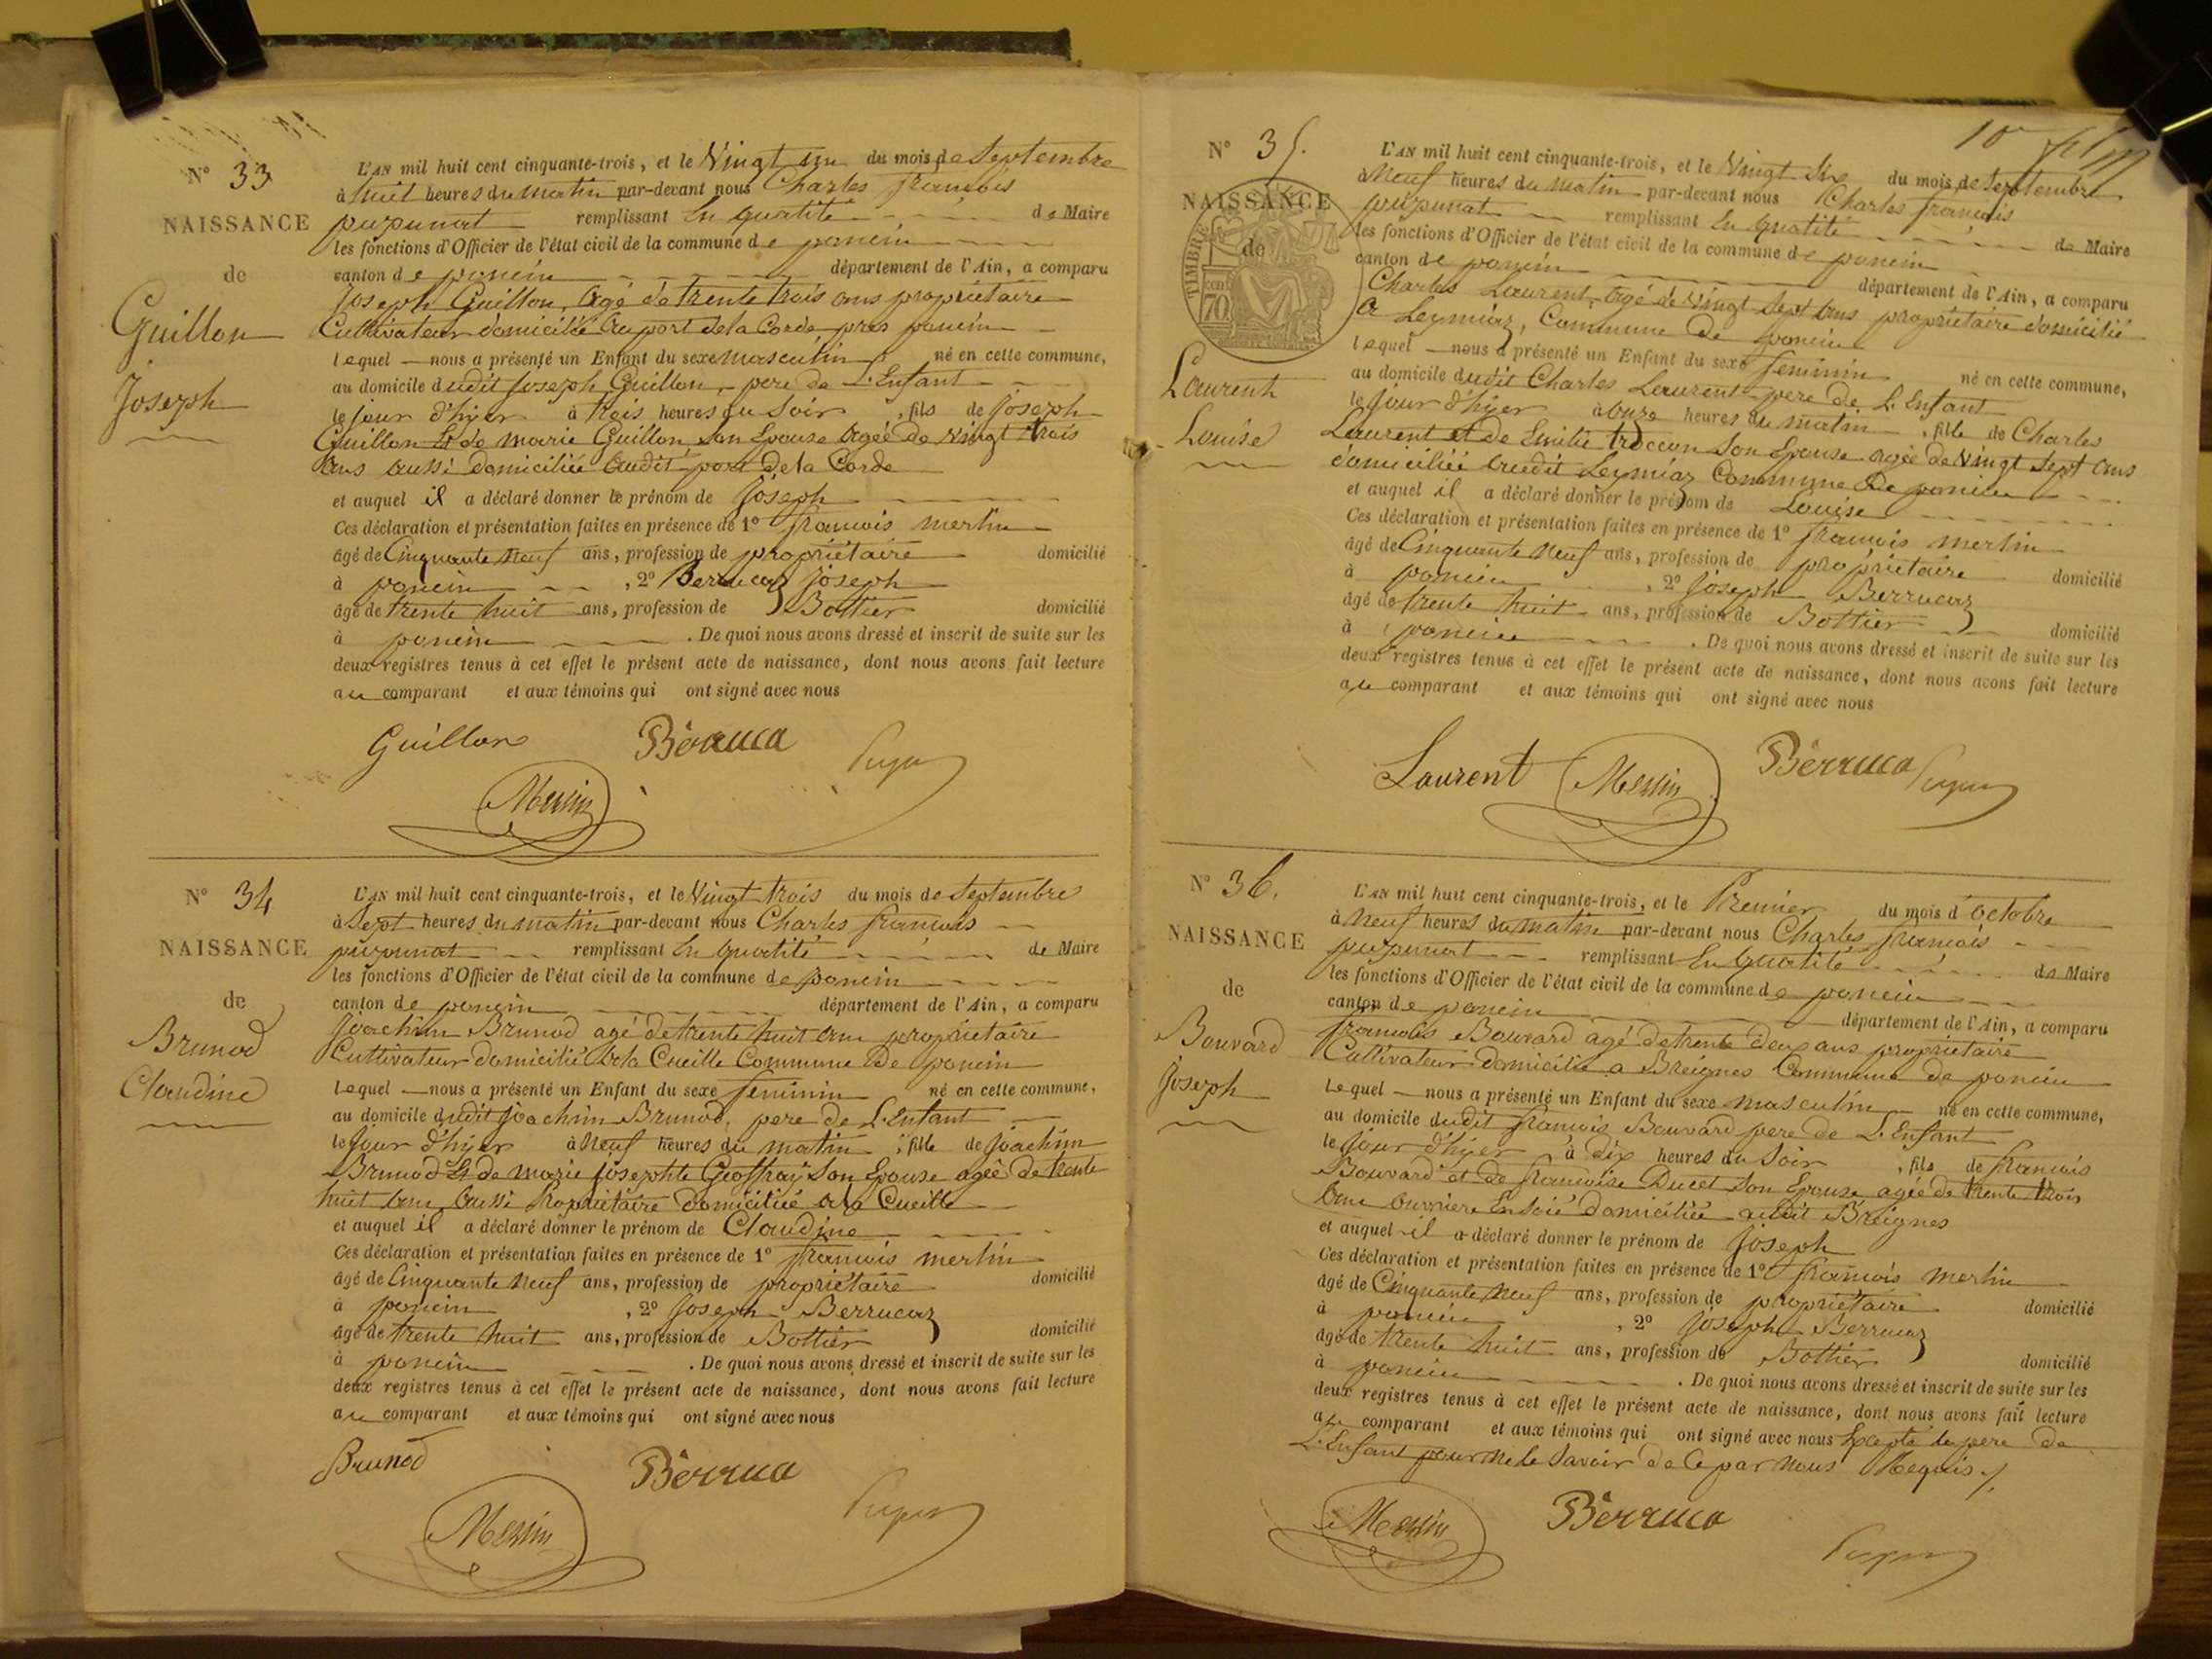 N° 33
NAISSANCE
de
Guillon
Joseph
L'AN mil huit cent cinquante-trois, et le Vingt un du mois de Septembre
à huit heures du matin par-devant nous Charles françois
pupunat remplissant En qualité de Maire
les fonctions d'Officier de l'état civil de la commune de poncin
canton de poncin département de l'Ain, a comparu
Joseph Guillon, agé de trente trois ans propriétaire
Cultivateur domicilié au port de la Corde près poncin
lequel nous a présenté un Enfant du sexe masculin né en cette commune,
au domicile dudit Joseph Guillon, pere de L'Enfant
le jour d'hyer à trois heures du Soir, fils de Joseph
Guillon Et de marie Guillon Son Epouse agée de Vingt trois
ans aussi domiciliée audit port de la Corde
et auquel il a déclaré donner le prénom de Joseph
Ces déclaration et présentation faites en présence de 1° françois merlin
âgé de Cinquante Neuf ans, profession de propriétaire domicilié
à poncin, 2° Berrucaz Joseph
âgé de trente huit ans, profession de Bottier domicilié
à poncin. De quoi nous avons dressé et inscrit de suite sur les
deux registres tenus à cet effet le présent acte de naissance, dont nous avons fait lecture
au comparant et aux témoins qui ont signé avec nous
Guillon Bérruca
N° 34
NAISSANCE
de
Brunod
Claudine
L'AN mil huit cent cinquante-trois, et le Vingt trois du mois de Septembre
à Sept heures du matin par-devant nous Charles françois
pupunat remplissant En qualité de Maire
les fonctions d'Officier de l'état civil de la commune de poncin
canton de poncin département de l'Ain, a comparu
Joachim Brunod agé de trente huit ans propriétaire
Cultivateur domicilié a la Cueille Commune de poncin
lequel nous a présenté un Enfant du sexe feminin né en cette commune,
au domicile dudit Joachim Brunod, pere de L'Enfant
le Jour d'hyer à Neuf heures du matin, fille de Joachim
Brunod Et de marie Josephte Geoffray Son Epouse agée de trente
huit ans aussi Propriétaire domiciliée a la Cueille
et auquel il a déclaré donner le prénom de Claudine
Ces déclaration et présentation faites en présence de 1° françois merlin
âgé de Cinquante Neuf ans, profession de propriétaire domicilié
à poncin, 2° Joseph Berrucaz
âgé de trente huit ans, profession de Bottier domicilié
à poncin. De quoi nous avons dressé et inscrit de suite sur les
deux registres tenus à cet effet le présent acte de naissance, dont nous avons fait lecture
au comparant et aux témoins qui ont signé avec nous
Brunod Bérruca
10
N° 35.
NAISSANCE
de
TIMBRE
70
Laurent
Louise
L'AN mil huit cent cinquante-trois, et le Vingt Six du mois de Septembre
à Neuf heures du matin par-devant nous Charles françois
pupunat remplissant En qualité de Maire
les fonctions d'Officier de l'état civil de la commune de poncin
canton de poncin département de l'Ain, a comparu
Charles Laurent, agé de Vingt Sept ans propriétaire domicilié
a Leymiaz, Commune de poncin
lequel nous a présenté un Enfant du sexe feminin né en cette commune,
au domicile dudit Charles Laurent pere de L'Enfant
le Jour d'hyer à onze heures du matin, fille de Charles
Laurent et de Emilie troccon Son Epouse agée de Vingt Sept ans
domiciliée audit Leymiaz Commune de poncin
et auquel il a déclaré donner le prénom de Louise
Ces déclaration et présentation faites en présence de 1° françois merlin
âgé de Cinquante Neuf ans, profession de propriétaire domicilié
à poncin, 2° Joseph Berrucaz
âgé de trente huit ans, profession de Bottier domicilié
à poncin. De quoi nous avons dressé et inscrit de suite sur les
deux registres tenus à cet effet le présent acte de naissance, dont nous avons fait lecture
au comparant et aux témoins qui ont signé avec nous
Laurent Bérruca
N° 36.
NAISSANCE
de
Bouvard
Joseph
L'AN mil huit cent cinquante-trois, et le Premier du mois d'octobre
à Neuf heures du matin par-devant nous Charles françois
pupunat remplissant En qualité de Maire
les fonctions d'Officier de l'état civil de la commune de poncin
canton de poncin département de l'Ain, a comparu
françois Bouvard agé de trente deux ans propriétaire
Cultivateur domicilié a Breignes Commune de poncin
lequel nous a présenté un Enfant du sexe masculin né en cette commune,
au domicile dudit françois Bouvard pere de L'Enfant
le jour d'hyer à dix heures du Soir, fils de françois
Bouvard et de françoise Ducet Son Epouse agée de trente trois
ans ouvriere En Soie domiciliée audit Breignes
et auquel il a déclaré donner le prénom de Joseph
Ces déclaration et présentation faites en présence de 1° françois merlin
âgé de Cinquante Neuf ans, profession de propriétaire domicilié
à poncin, 2° Joseph Berrucaz
âgé de trente huit ans, profession de Bottier domicilié
à poncin. De quoi nous avons dressé et inscrit de suite sur les
deux registres tenus à cet effet le présent acte de naissance, dont nous avons fait lecture
au comparant et aux témoins qui ont signé avec nous Excepté le pere de
L'Enfant pour ne le Savoir de Ce par nous Requis
Bérruca